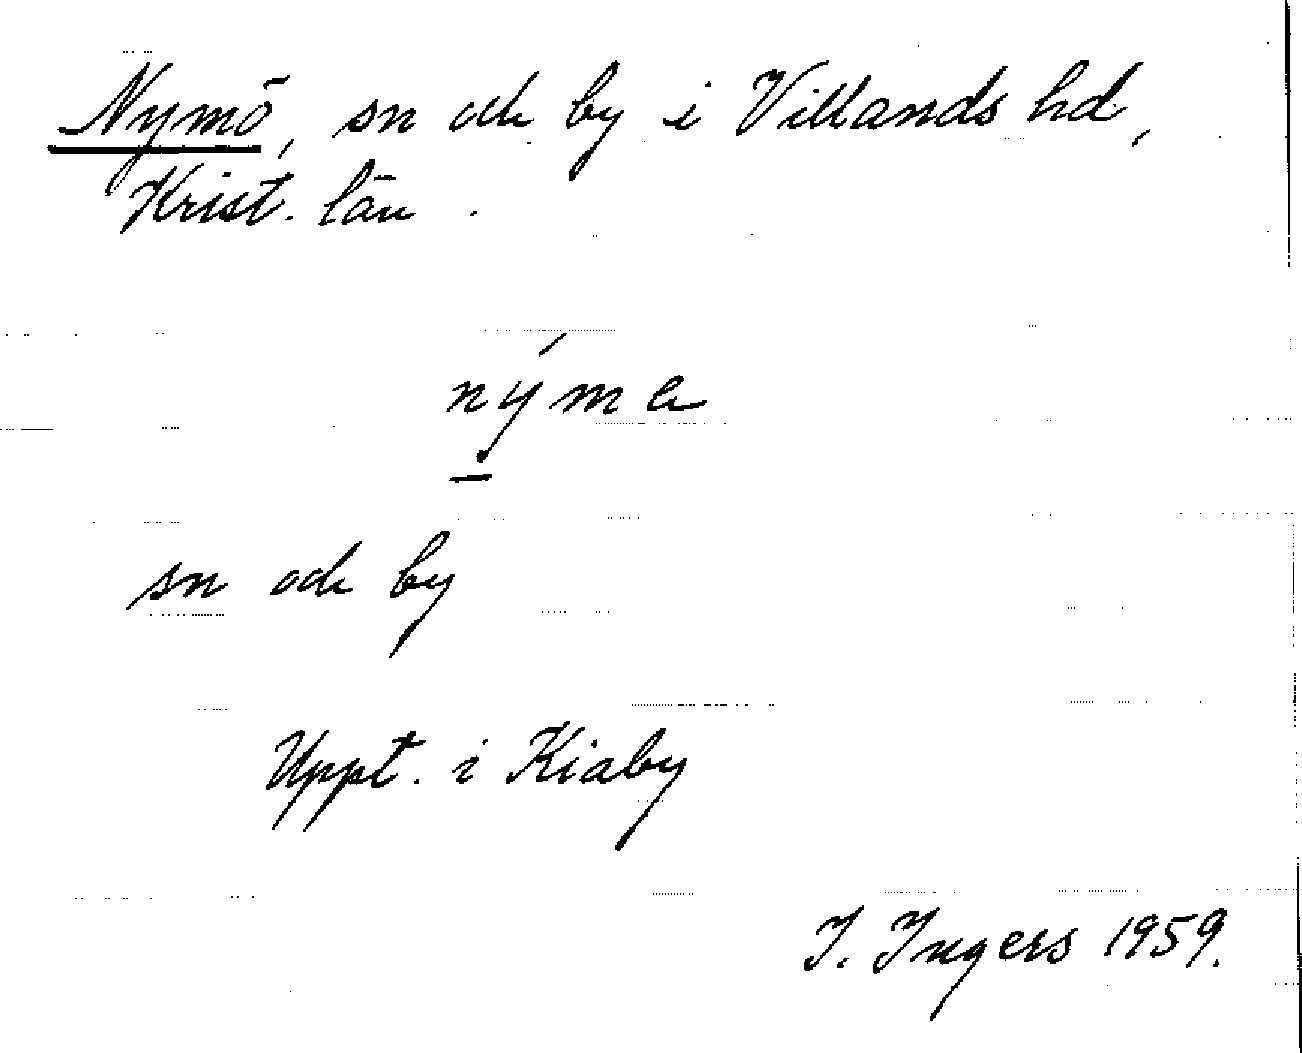 Nymö, sn och by i Villands hd,
Krist. län.
nýma
sn och by
Uppt. i Kiaby
I. Ingers 1959.